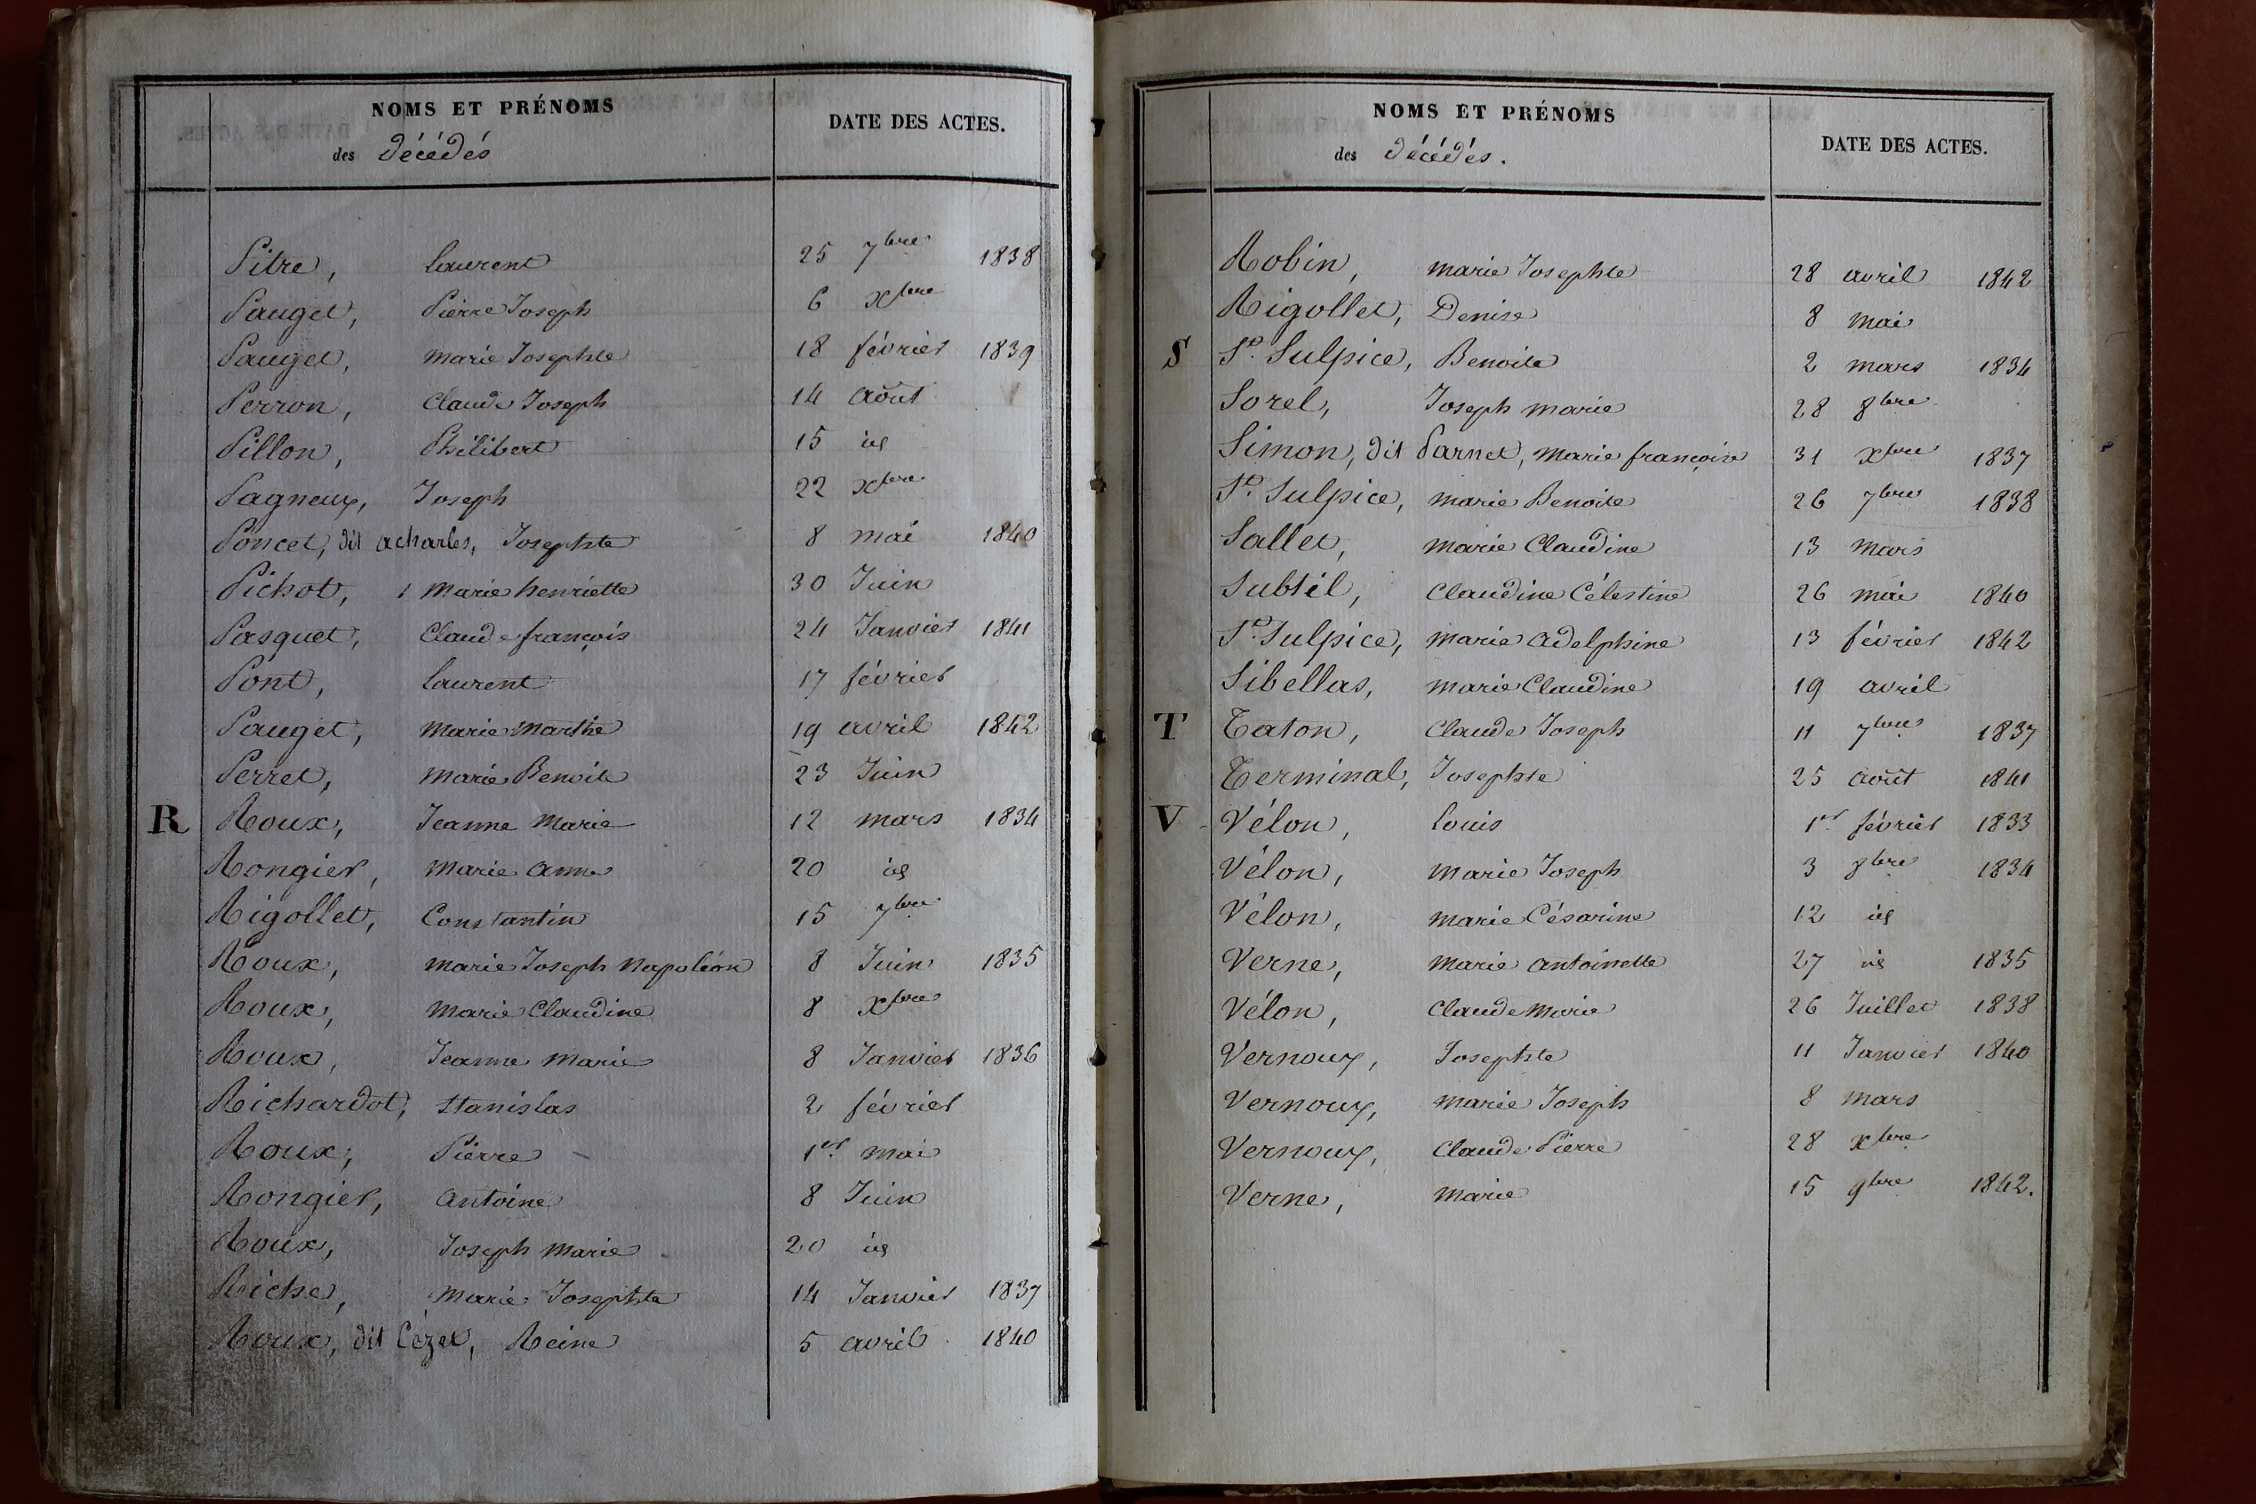 NOMS ET PRÉNOMS
des décédés
DATE DES ACTES.
Pitre, laurent 25 7bre 1838
Pauget, Pierre Joseph 6 xbre
Pauget, marie Josephte 18 février 1839
Perron, Claude Joseph 14 août
Pillon, Philibert 15 id
Pagneux, Joseph 22 xbre
Poncet, dit acharles, Josephte 8 mai 1840
Pichot, marie henriette 30 Juin
Pasquet, Claude françois 24 Janvier 1841
Pont, laurent 17 février
Pauget, marie marthe 19 avril 1842
Perret, marie Benoite 23 Juin
R Roux, Jeanne marie 12 mars 1834
Rongier, marie anne 20 id
Rigollet, Constantin 15 7bre
Roux, marie Joseph Napoléon 8 Juin 1835
Roux, marie Claudine 8 xbre
Roux, Jeanne marie 8 Janvier 1836
Richardot, stanislas 2 février
Roux, Pierre 1er mai
Rongier, antoine 8 Juin
Roux, Joseph marie 20 id
Riche, marie Josephte 14 Janvier 1837
Roux, dit Cézet, Reine 5 avril 1840
NOMS ET PRÉNOMS
des décédés.
DATE DES ACTES.
Robin, marie Josephte 28 avril 1842
Rigollet, Denise 8 mai
S St. Sulpice, Benoite 2 mars 1834
Sorel, Joseph marie 28 8bre
Simon, dit Parnet, marie françoise 31 xbre 1837
St. Sulpice, marie Benoite 26 7bre 1838
Sallet, marie Claudine 13 mars
Subtil, Claudine Célestine 26 mai 1840
St. Sulpice, marie adelphine 13 février 1842
Sibellas, marie Claudine 19 avril
T Taton, Claude Joseph 11 7bre 1837
Terminal, Josephte 25 août 1841
V Vélon, louis 1er février 1833
Vélon, marie Joseph 3 8bre 1834
Vélon, marie Césarine 12 id
Verne, marie antoinette 27 id 1835
Vélon, Claude Marie 26 Juillet 1838
Vernoux, Josephte 11 Janvier 1840
Vernoux, marie Joseph 8 mars
Vernoux, Claude Pierre 28 xbre
Verne, marie 15 9bre 1842.